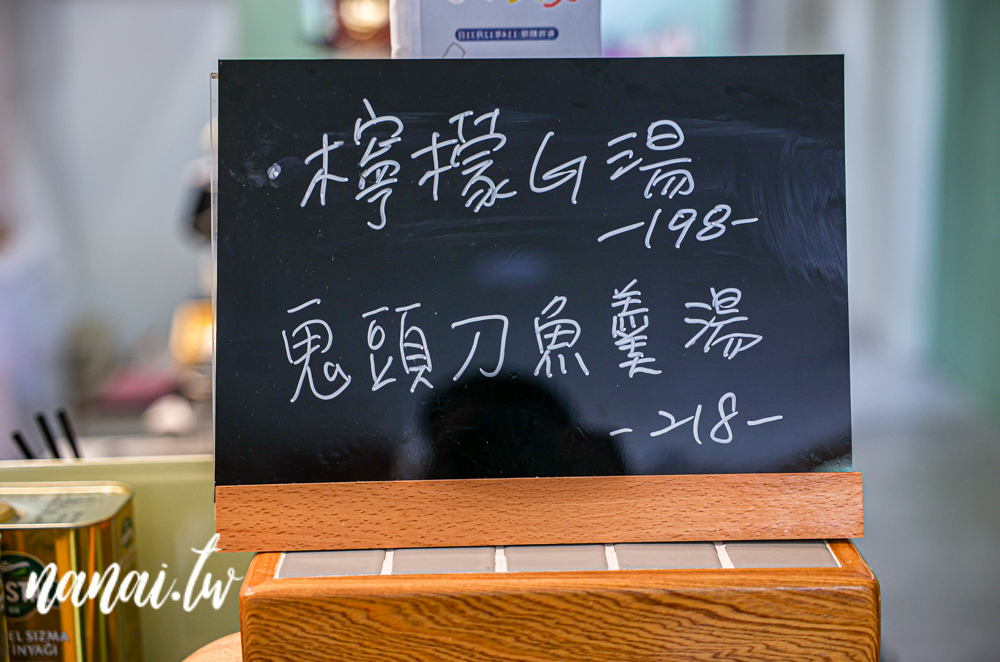 ·檸檬G湯
-198-
鬼頭刀魚羹湯
-218-
nanai.tw
EL SIZMA
INYAĞI